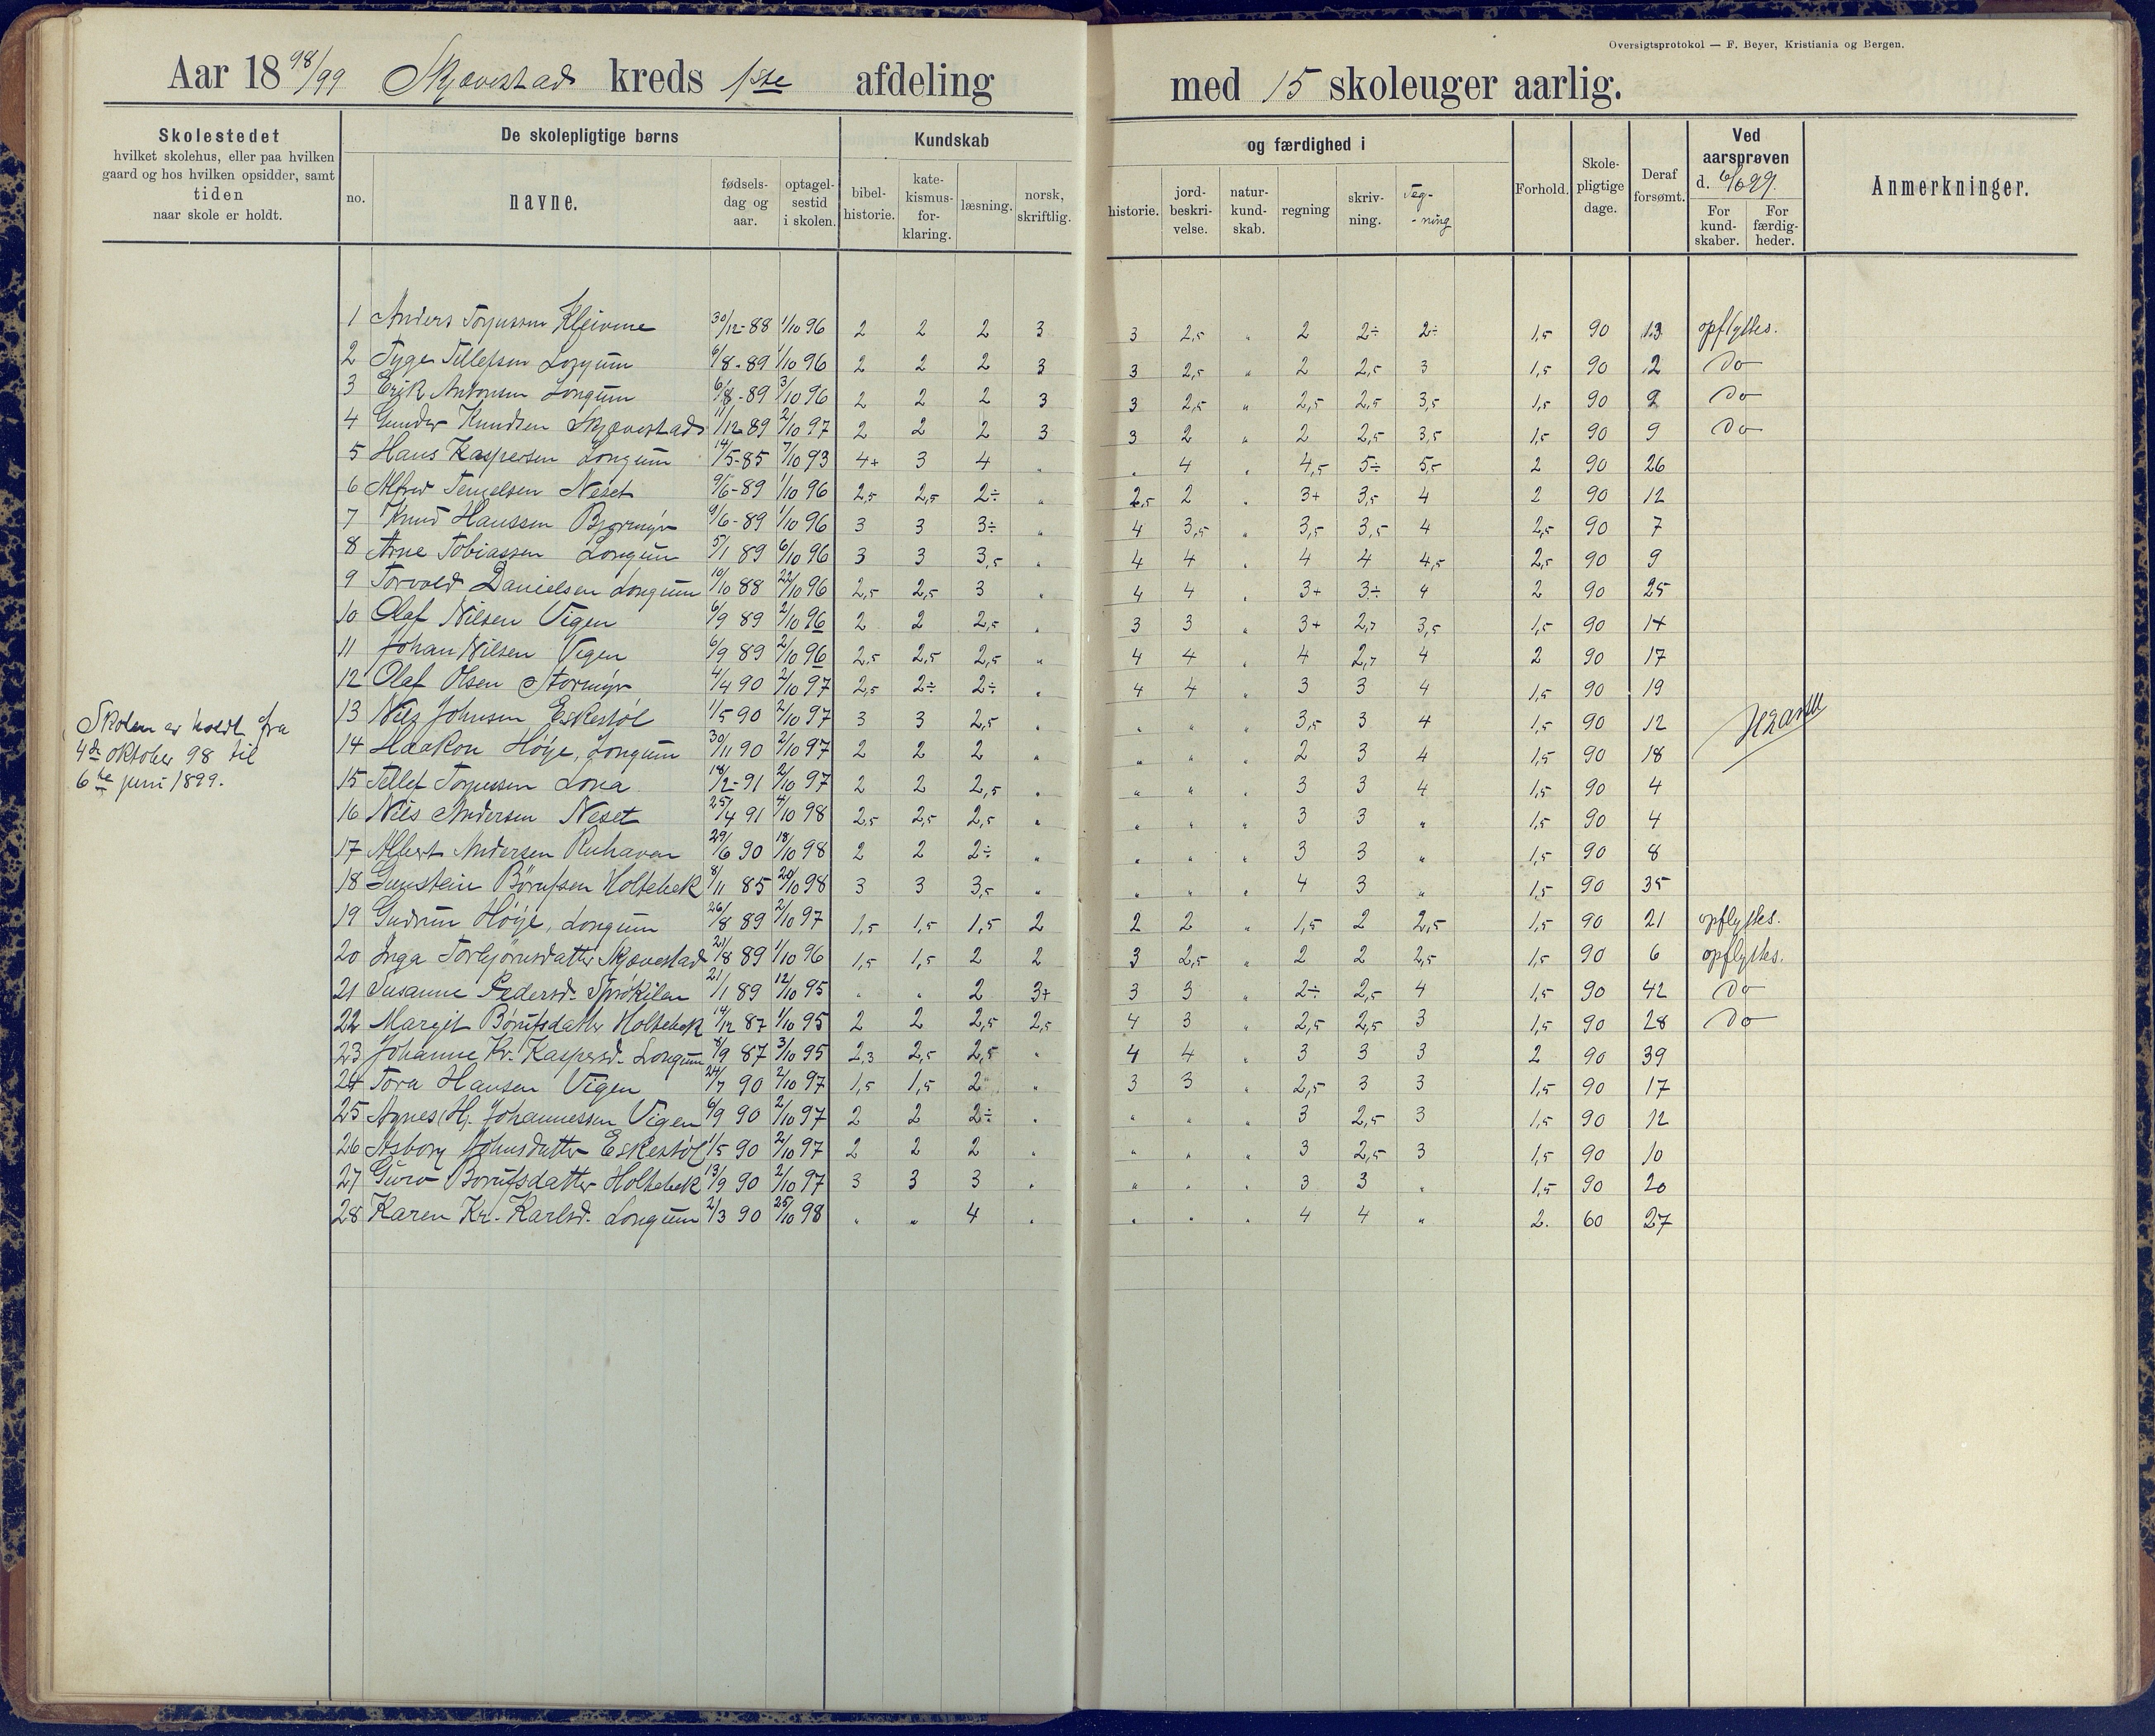 Oversigtsprotokol — F. Beyer, Kristiania og Bergen.
Aar 1898/99 Skjævestad kreds 1ste afdeling med 15 skoleuger aarlig.
Skolestedet hvilket skolehus, eller paa hvilken gaard og hos hvilken opsidder, samt tiden naar skole er holdt.
De skolepligtige børns
no. navne. fødsels-dag og aar. optagel-sestid i skolen.
Kundskab og færdighed i
bibel-historie. kate-kismus-for-klaring. læsning. norsk, skriftlig. historie. jord-beskri-velse. natur-kund-skab. regning skriv-ning. Teg-ning
Forhold. Skole-pligtige dage. Deraf forsømt.
Ved aarsprøven d. 6/6 99.
For kund-skaber. For færdig-heder.
Anmerkninger.
1 Anders Torjussen Kleivene 30/12-88 1/10 96 2 2 2 3 3 2,5 " 2 2÷ 2÷ 1,5 90 13 opflyttes.
2 Tyge Tellefsen Longum 6/8-89 1/10 96 2 2 2 3 3 2,5 " 2 2,5 3 1,5 90 2 Do
3 Erik Antonsen Longum 6/8-89 3/10 96 2 2 2 3 3 2,5 " 2,5 2,5 3,5 1,5 90 2 Do
4 Gunder Knudsen Skjævestad 11/12 89 2/10 97 2 2 2 3 3 2 " 2 2,5 3,5 1,5 90 9 Do
5 Hans Kaspersen Longum 14/5-85 7/10 93 4+ 3 4 " " 4 " 4,5 5÷ 5,5 2 90 26
6 Alfred Tengelsen Neset 9/6-89 1/10 96 2,5 2,5 2÷ " 2,5 2 " 3+ 3,5 4 2 90 12
7 Knud Hanssen Bjormyr 9/6-89 1/10 96 3 3 3÷ " 4 3,5 " 3,5 3,5 4 2,5 90 7
8 Arne Tobiassen Longum 5/1 89 6/10 96 3 3 3,5 " 4 4 " 4 4 4,5 2,5 90 9
9 Torvald Danielsen Longum 10/10 88 22/10 96 2,5 2,5 3 " 4 4 " 3+ 3÷ 4 2 90 25
10 Olaf Nilsen Vigen 6/9 89 2/10 96 2 2 2,5 " 3 3 " 3+ 2,7 3,5 1,5 90 14
11 Johan Nilsen Vigen 6/9 89 2/10 96 2,5 2,5 2,5 " 4 4 " 4 2,7 4 2 90 17
12 Olaf Olsen Stormyr 4/4 90 2/10 97 2,5 2÷ 2÷ " 4 4 " 3 3 4 1,5 90 19
13 Nils Johnsen Eskestøl 1/5 90 2/10 97 3 3 2,5 " " " " 3,5 3 4 1,5 90 12
Skolen er holdt fra
4de oktober 98 til
6te juni 1899.
14 Haakon Höye, Longum 30/11 90 2/10 97 2 2 2 " " " " 2 3 4 1,5 90 18
15 Tellef Torjussen Lona 18/2-91 2/10 97 2 2 2,5 " " " " 3 3 4 1,5 90 4
16 Nils Andersen Neset 25/4 91 4/10 98 2,5 2,5 2,5 " " " " 3 3 " 1,5 90 4
17 Albert Andersen Ruhaven 29/6 90 18/10 98 2 2 2÷ " " " " 3 3 " 1,5 90 8
18 Gunstein Börufsen Holtebek 8/11 85 20/10 98 3 3 3,5 " " " " 4 3 " 1,5 90 35
19 Gudrun Höye, Longum 26/8 89 2/10 97 1,5 1,5 1,5 2 2 2 " 1,5 2 2,5 1,5 90 21 opflyttes.
20 Inga Torbjörnsdatter Skjævestad 21/8 89 1/10 96 1,5 1,5 2 2 3 2,5 " 2 2 2,5 1,5 90 6 opflyttes.
21 Susanne Pedersd. Sprökilen 21/1 89 12/10 95 " " 2 3+ 3 3 " 2÷ 2,5 4 1,5 90 42 Do
22 Margit Börufsdatter Holtebek 14/12 87 1/10 95 2 2 2,5 2,5 4 3 " 2,5 2,5 3 1,5 90 28 Do
23 Johanne Kr. Kaspersd. Longum 8/9 87 3/10 95 2,3 2,5 2,5 " 4 4 " 3 3 3 2 90 39
24 Tora Hansen Vigen 24/7 90 2/10 97 1,5 1,5 2 " 3 3 " 2,5 3 3 1,5 90 17
25 Agnes H. Johannessen Vigen 6/9 90 2/10 97 2 2 2÷ " " " " 3 2,5 3 1,5 90 12
26 Asborg Johnsdatter Eskestöl 1/5 90 2/10 97 2 2 2 " " " " 3 2,5 3 1,5 90 10
27 Guro Börufsdatter Holtebek 13/9 90 2/10 97 3 3 3 " " " " 3 3 " 1,5 90 20
28 Karen Kr. Karlsd. Longum 2/3 90 25/10 98 " " 4 " " " " 4 4 " 2. 60 27